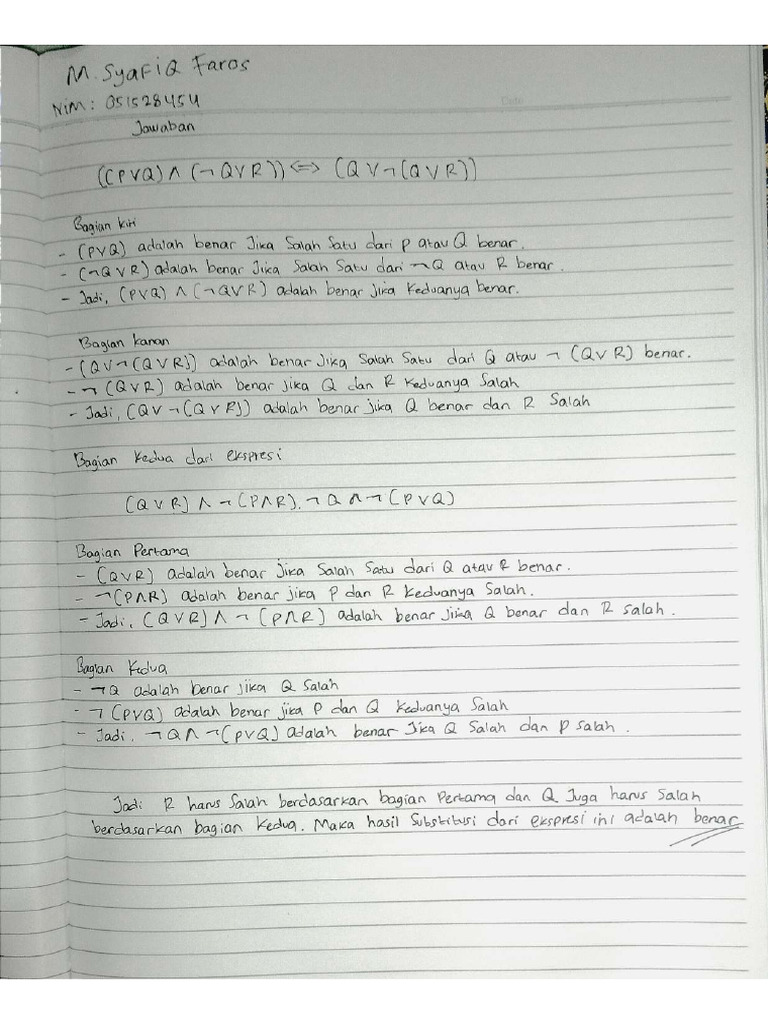 M. SyafiQ Faros
NiM: 051528454
Jawaban
((PVQ) ∧ (¬QVR)) ⇔ (QV¬(QVR))
Bagian kiri
- (PVQ) adalah benar Jika Salah Satu dari P atau Q benar.
- (¬QVR) adalah benar Jika Salah Satu dari ¬Q atau R benar.
- Jadi, (PVQ) ∧ (¬QVR) adalah benar jika Keduanya benar.
Bagian kanan
- (QV¬(QVR)) adalah benar jika Salah Satu dari Q atau ¬(QVR) benar.
- ¬(QVR) adalah benar jika Q dan R Keduanya Salah
- Jadi, (QV¬(QVR)) adalah benar jika Q benar dan R Salah
Bagian Kedua dari ekspresi
(QVR) ∧ ¬(P∧R). ¬Q ∧ ¬(PVQ)
Bagian Pertama
- (QVR) adalah benar jika Salah Satu dari Q atau R benar.
- ¬(P∧R) adalah benar jika P dan R Keduanya Salah.
- Jadi, (QVR) ∧ ¬(P∧R) adalah benar jika Q benar dan R salah.
Bagian Kedua
- ¬Q adalah benar jika Q Salah
- ¬(PVQ) adalah benar jika P dan Q Keduanya Salah
- Jadi. ¬Q ∧ ¬(PVQ) adalah benar Jika Q Salah dan P salah.
Jadi R harus Salah berdasarkan bagian Pertama dan Q Juga harus Salah
berdasarkan bagian Kedua. Maka hasil Substitusi dari ekspresi ini adalah benar